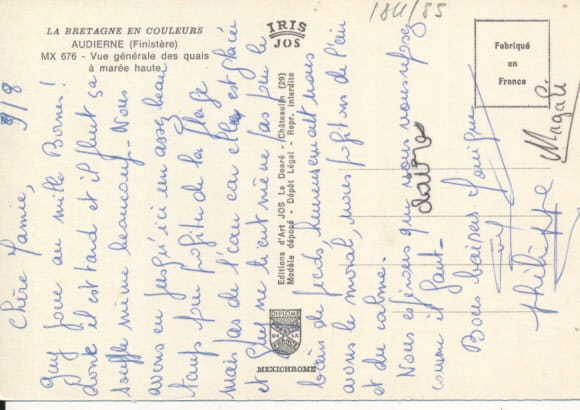 LA BRETAGNE EN COULEURS
AUDIERNE (Finistère)
MX 676 - Vue générale des quais
à marée haute
IRIS
JOS
Fabriqué
en
France
Editions d'Art JOS Le Doaré - Châteaulin (29)
Modèle déposé - Dépôt Légal - Repr. interdite
MEXICHROME
9/8
Chère Mamie,
Guy joue au mille Bornes !
donc il est tard et il pleut, ça
souffle même beaucoup. Nous
avons eu jusqu'ici un assez beau
temps pu profiter de la plage
mais pas de l'eau car elle est glacée
et Guy ne tient même pas pour le
bain de pieds heureusement nous
avons le moral, nous profitons de l'air
et du calme.
Nous espérons que vous vous reposez
comme il faut.
Bons baisers
Guy
Philippe
Magali